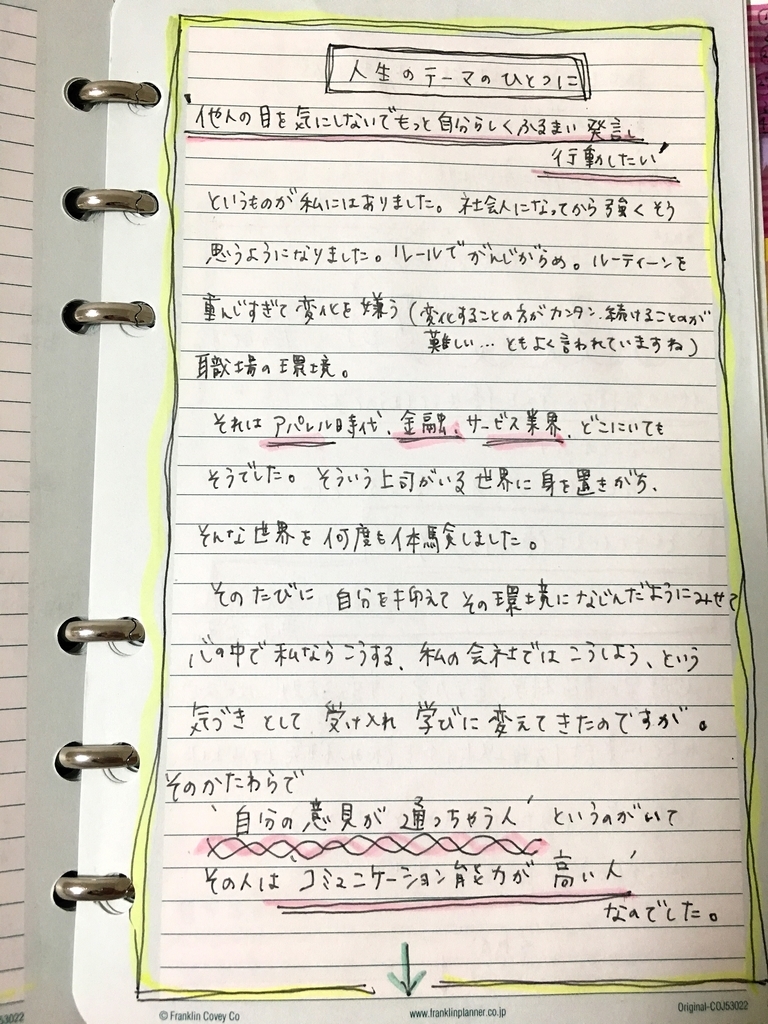 人生のテーマのひとつに
'他人の目を気にしないでもっと自分らしくふるまい 発言し
行動したい'
というものが私にはありました。社会人になってから強くそう
思うようになりました。ルールでがんじがらめ。ルーティーンを
重んじすぎて変化を嫌う(変化することの方がカンタン.続けることのが
難しい…ともよく言われていますね)
職場の環境。
それはアパレル時代、金融、サービス業界、どこにいても
そうでした。そういう上司がいる世界に身を置きがち、
そんな世界を何度も体験しました。
そのたびに 自分を抑えてその環境になじんだようにみせて
心の中で私ならこうする、私の会社ではこうしよう、という
気づきとして受け入れ学びに変えてきたのですが。
そのかたわらで
'自分の意見が通っちゃう人' というのがいて
その人は'コミュニケーション能力が高い人'
なのでした。
↓
53022
© Franklin Covey Co
www.franklinplanner.co.jp
Original-COJ53022